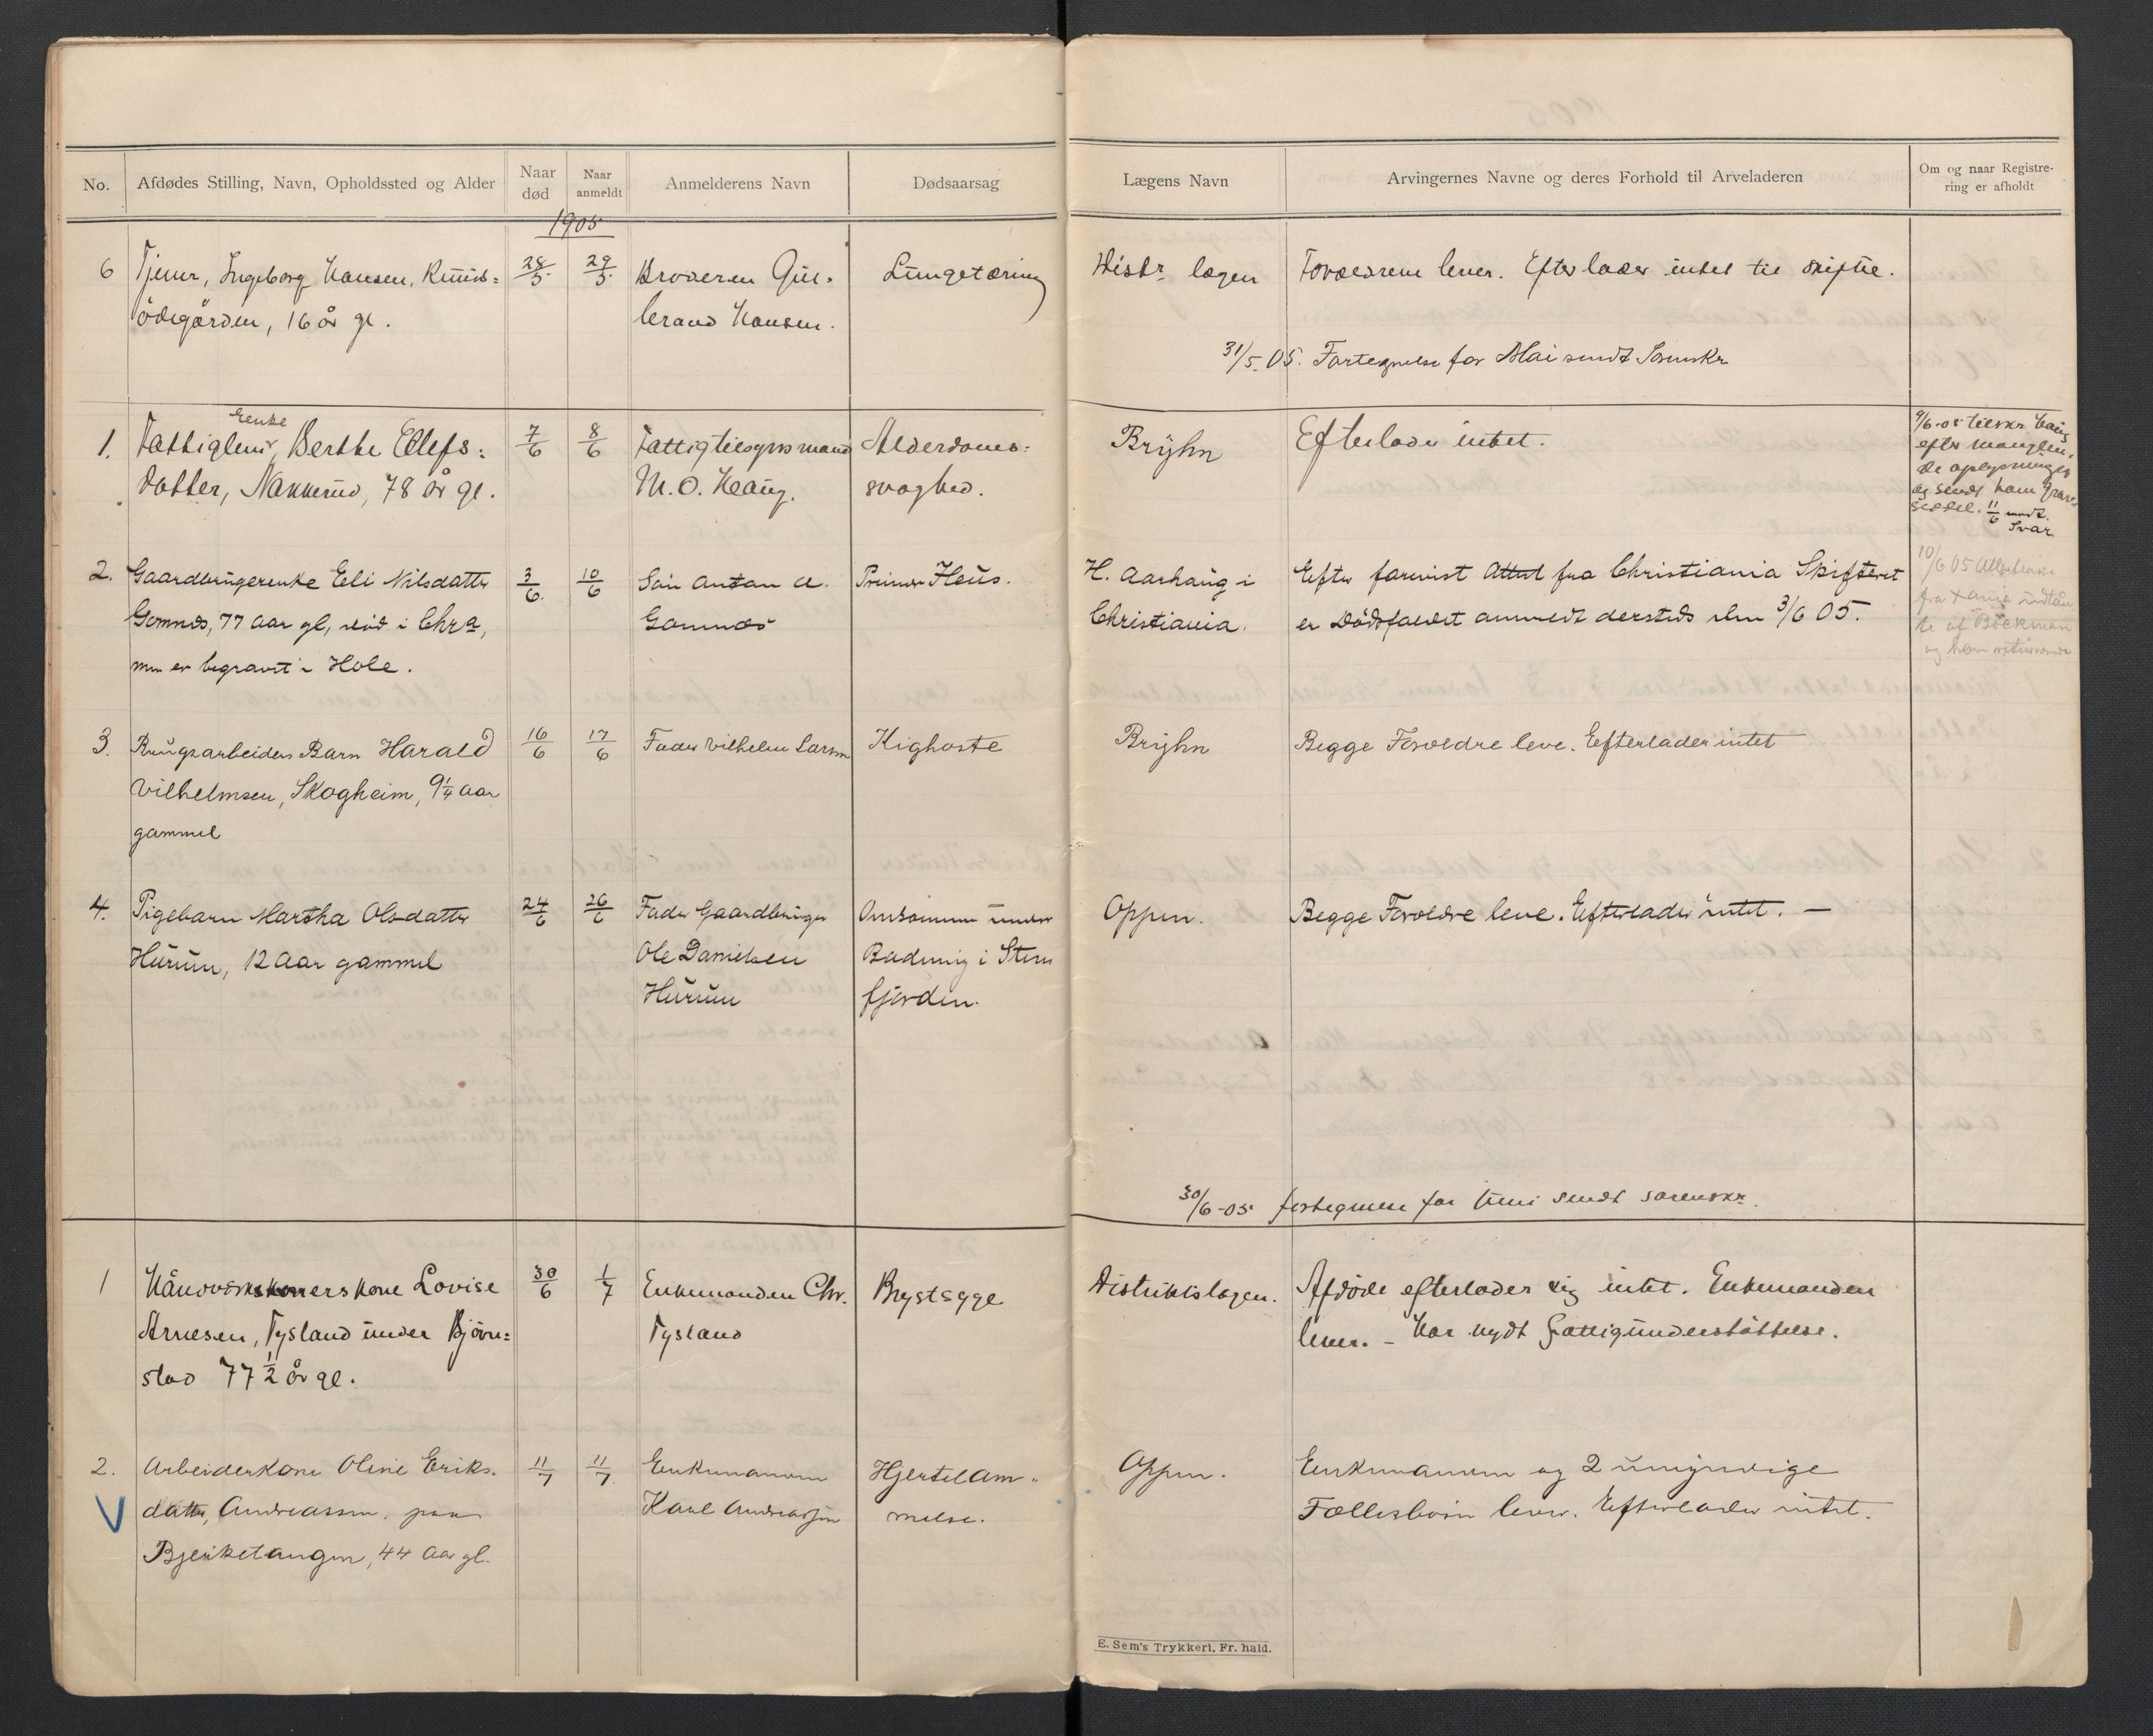 No.
Afdødes Stilling, Navn, Opholdssted og Alder
Naar død
Naar anmeldt
Anmelderens Navn
Dødsaarsag
Lægens Navn
Arvingernes Navne og deres Forhold til Arveladeren
Om og naar Registre-
ring er afholdt
1905
6
Tjener, Ingeborg Hansen, Knuds=
ödegården, 16 år gl.
28/5
29/5
Broderen Gul-
brand Hansen.
Lungetæring
Distr lægen
Forældrene lever. Efterlader intet til skifte.
31/5.05. Fortegnelse for Mai sendt Sorenskr
1.
Enke
Fattiglem, Berthe Ellefs=
datter, Nakkerud, 78 år gl.
7/6
8/6
Fattigtilsynsmand
M. O. Haug.
Alderdoms=
svaghed.
Brÿhn
Efterlader intet.
9/6-05 tilskr. Haug
efter manglen-
de oplysninger
og sendt ham
seddel. 11/6 modt.
Svar
2.
Gaardbrugerenke Eli Nilsdatter
Gomnæs, 77 Aar gl, död i Chra,
men er begravet i Hole.
3/6.
10/6
Sön Anton A.
Gomnæs
H. Aarhaug i
Christiania.
Efter forevist Attest fra Christiania Skifteret
er Dödsfaldet anmeldt dersteds den 3/6 05.
10/6 05
3.
Brugsarbeiders Barn Harald
Vilhelmsen, Skogheim, 9 1/4 Aar
gammel
16/6
17/6
Fader Vilhelm Larsen
Kighoste
Brÿhn
Begge Forældre leve. Efterlader intet
4.
Pigebarn Martha Olsdatter
Hurum, 12 Aar gammel
24/6
26/6
Fader Gaardbruger
Ole Danielsen
Hurum
Omkommen under
Badning i Stens
fjorden.
Oppen.
Begge Forældre leve. Efterlader intet. —
30/6-05 fortegnelse for Juni sendt sorenskr.
1
Håndværkerskone Lovise
Arnesen, Tysland under Bjørn=
stad 77 1/2 år gl.
30/6
1/7
Enkemanden Chr.
Tysland
Brystsyge
Distriktslægen.
Afdöde efterlader sig intet. Enkemanden
lever. – Har nydt Fattigunderstöttelse.
2.
V
Arbeiderkone Oline Eriks-
datter, Andreassen, paa
Bjerketangen, 44 Aar gl.
11/7
11/7
Enkemanden
Karl Andreassen
Hjertelam-
melse.
Oppen.
Enkemanden og 2 umyndige
Fællesbörn lever. Efterlader intet.
E. Sem's Trykkeri, Fr. hald.